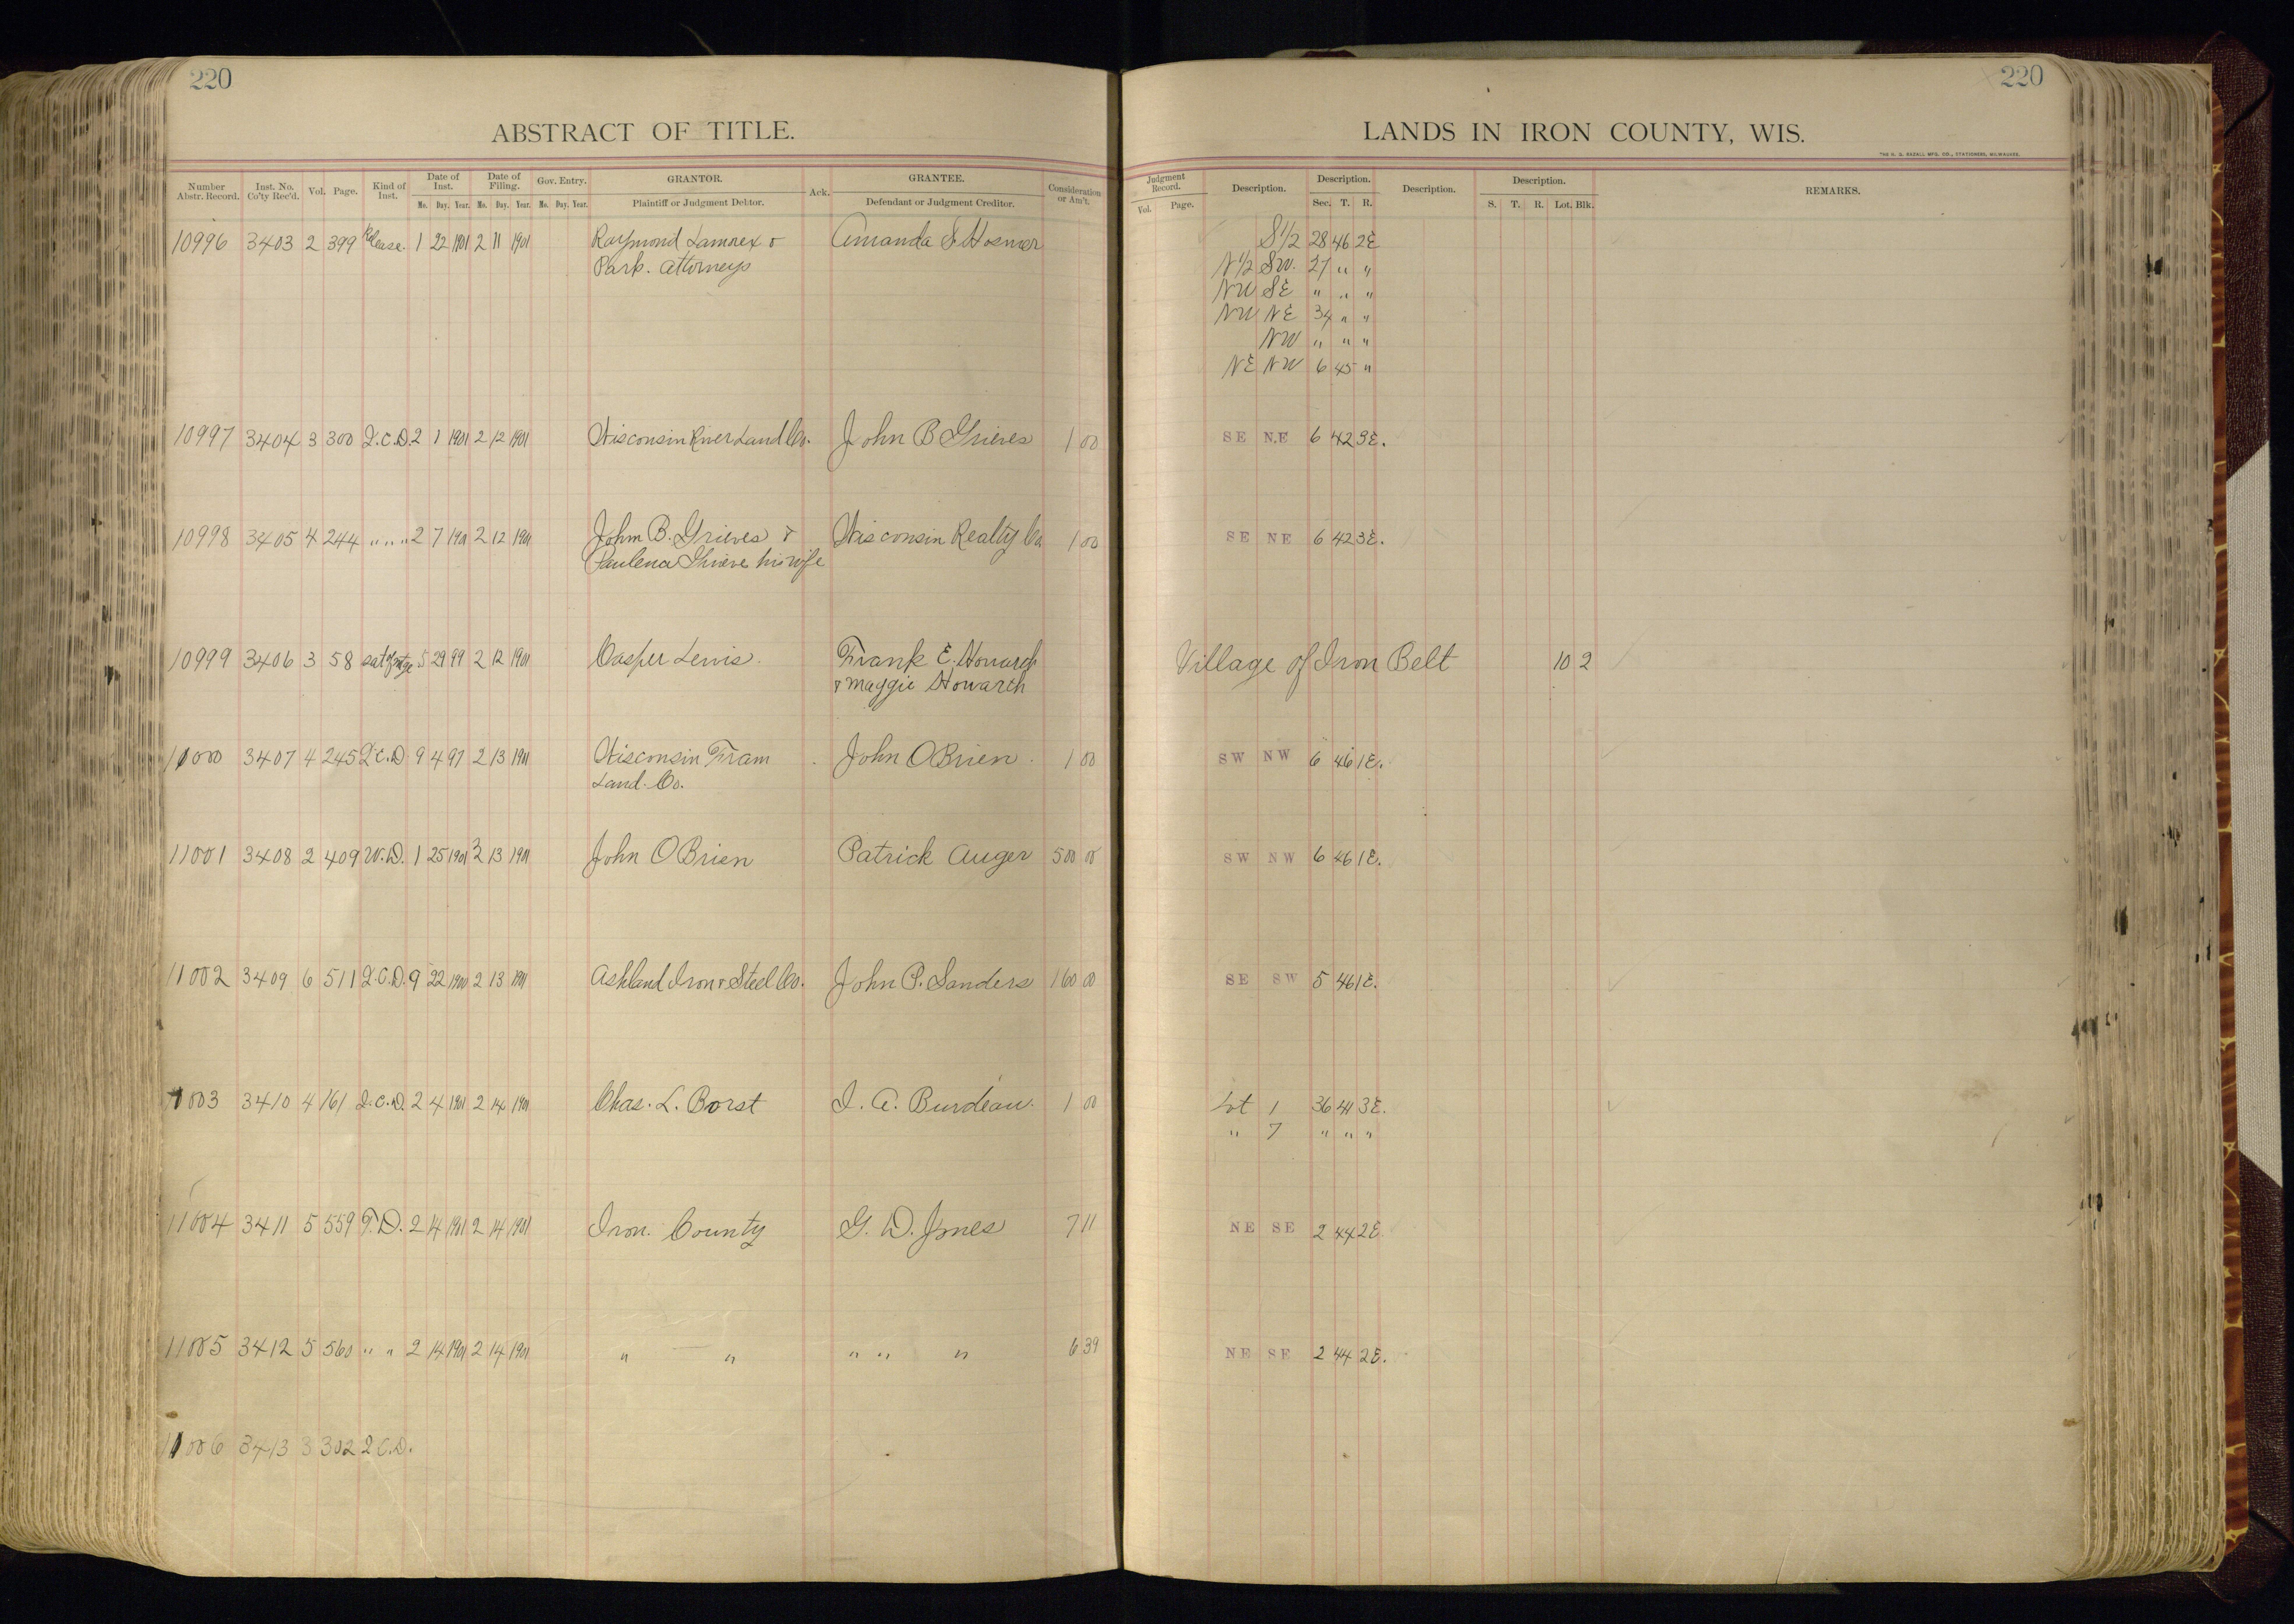 220
220
ABSTRACT OF TITLE.
LANDS IN IRON COUNTY, WIS.
Number Abstr. Record. Inst. No. Co'ty Rec'd. Vol. Page. Kind of Inst. Date of Inst. Mo. Day. Year. Date of Filing. Mo. Day. Year. Gov. Entry. Mo. Day. Year. GRANTOR. Plaintiff or Judgment Debtor. Ack. GRANTEE. Defendant or Judgment Creditor. Consideration or Am't.
Judgment Record. Vol. Page. Description. Description. Sec. T. R. Description. Description. S. T. R. Lot. Blk. REMARKS.
10996 3403 2 399 Release. 1 22 1901 2 11 1901 Raymond Lamorex & Amanda S. Hosmer S1/2 28 46 2E
Park. Attorneys N1/2 SW. 27 " "
NW SE " " "
NW NE 34 " "
NW " " "
NE NW 6 45 "
10997 3404 3 300 Q.C.D. 2 1 1901 2 12 1901 Wisconsin River Land Co. John B Grieves 1 00 SE NE 6 42 3E.
10998 3405 4 244 " " " 2 7 1901 2 12 1901 John B. Grieves & Wisconsin Realty Co 1 00 SE NE 6 42 3E.
Paulena Grieve his wife
10999 3406 3 58 sat of mtge 5 29 99 2 12 1901 Casper Lewis. Frank E. Howarth Village of Iron Belt 10 2
& Maggie Howarth
11000 3407 4 245 Q.C.D. 9 4 97 2 13 1901 Wisconsin Fram John OBrien. 1 00 SW NW 6 46 1E.
Land. Co.
11001 3408 2 409 W.D. 1 25 1901 2 13 1901 John OBrien Patrick Auger 500 00 SW NW 6 46 1E.
11002 3409 6 511 Q.C.D. 9 22 1900 2 13 1901 Ashland Iron & Steel Co. John P. Sanders 160 00 SE SW 5 46 1E.
11003 3410 4 161 Q.C.D. 2 4 1901 2 14 1901 Chas. L. Borst J. A. Burdeau. 1 00 Lot 1 36 41 3E.
" 7 " " "
11004 3411 5 559 T.D. 2 14 1901 2 14 1901 Iron. County G. W. Jones 7 11 NE SE 2 44 2E
11005 3412 5 560 " " 2 14 1901 2 14 1901 " " " " " 6 39 NE SE 2 44 2E.
11006 3413 3 302 Q.C.D.